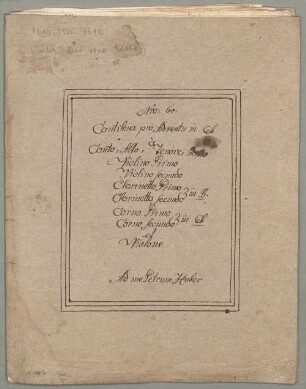 Nro: 60.
Cantilena pro Adventu in Eb
Canto, Alto, è Tenore,
Violino Primo
Violino secundo
Clarinetto Primo
Clarinetto secundo in B.
Corno Primo
Corno secundo in Eb
et
Violone.
Ad me Petrum Huber